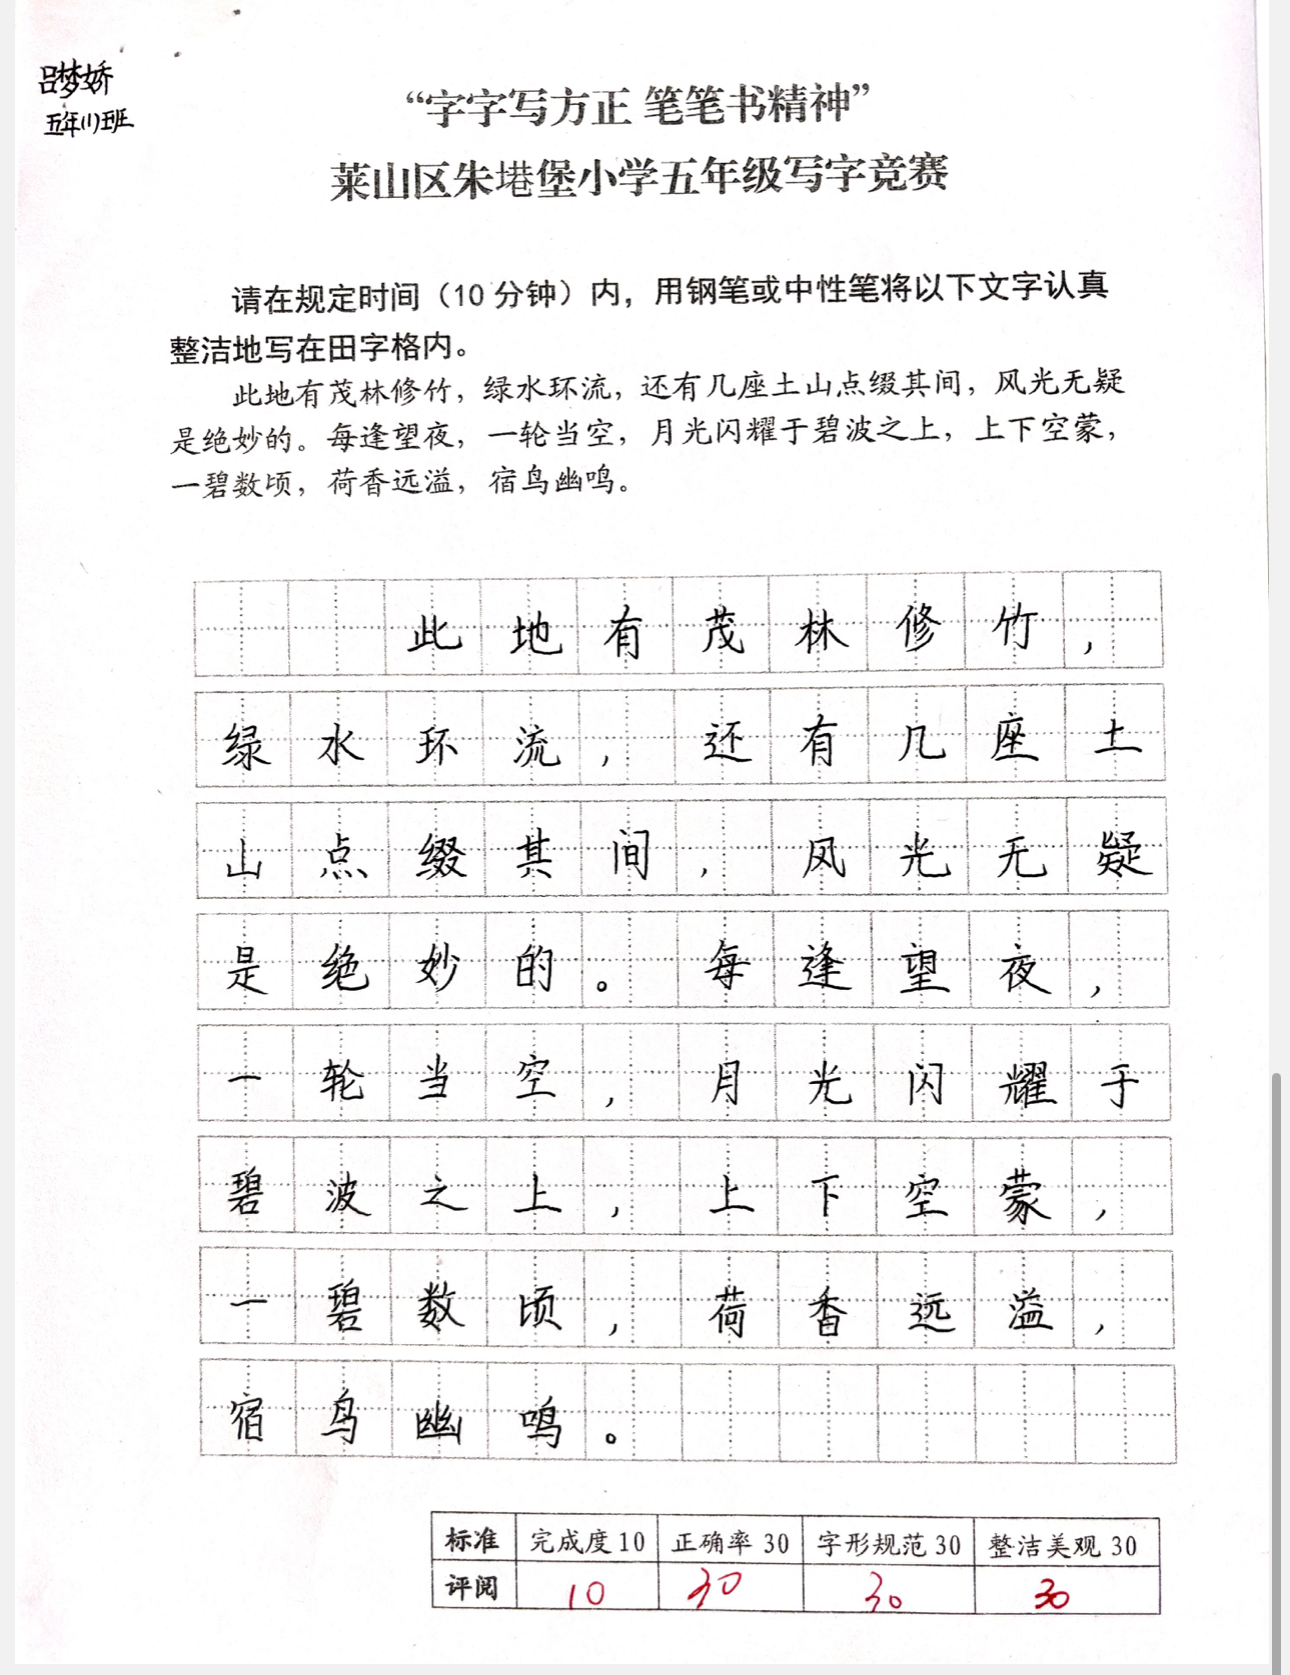 吕梦娇
五年(1)班
“字字写方正 笔笔书精神”
莱山区朱塂堡小学五年级写字竞赛
请在规定时间（10分钟）内，用钢笔或中性笔将以下文字认真
整洁地写在田字格内。
此地有茂林修竹，绿水环流，还有几座土山点缀其间，风光无疑
是绝妙的。每逢望夜，一轮当空，月光闪耀于碧波之上，上下空蒙，
一碧数顷，荷香远溢，宿鸟幽鸣。
此地有茂林修竹，
绿水环流，还有几座土
山点缀其间，风光无疑
是绝妙的。每逢望夜，
一轮当空，月光闪耀于
碧波之上，上下空蒙，
一碧数顷，荷香远溢，
宿鸟幽鸣。
标准 完成度10 正确率 30 字形规范30 整洁美观 30
评阅 10 30 30 30